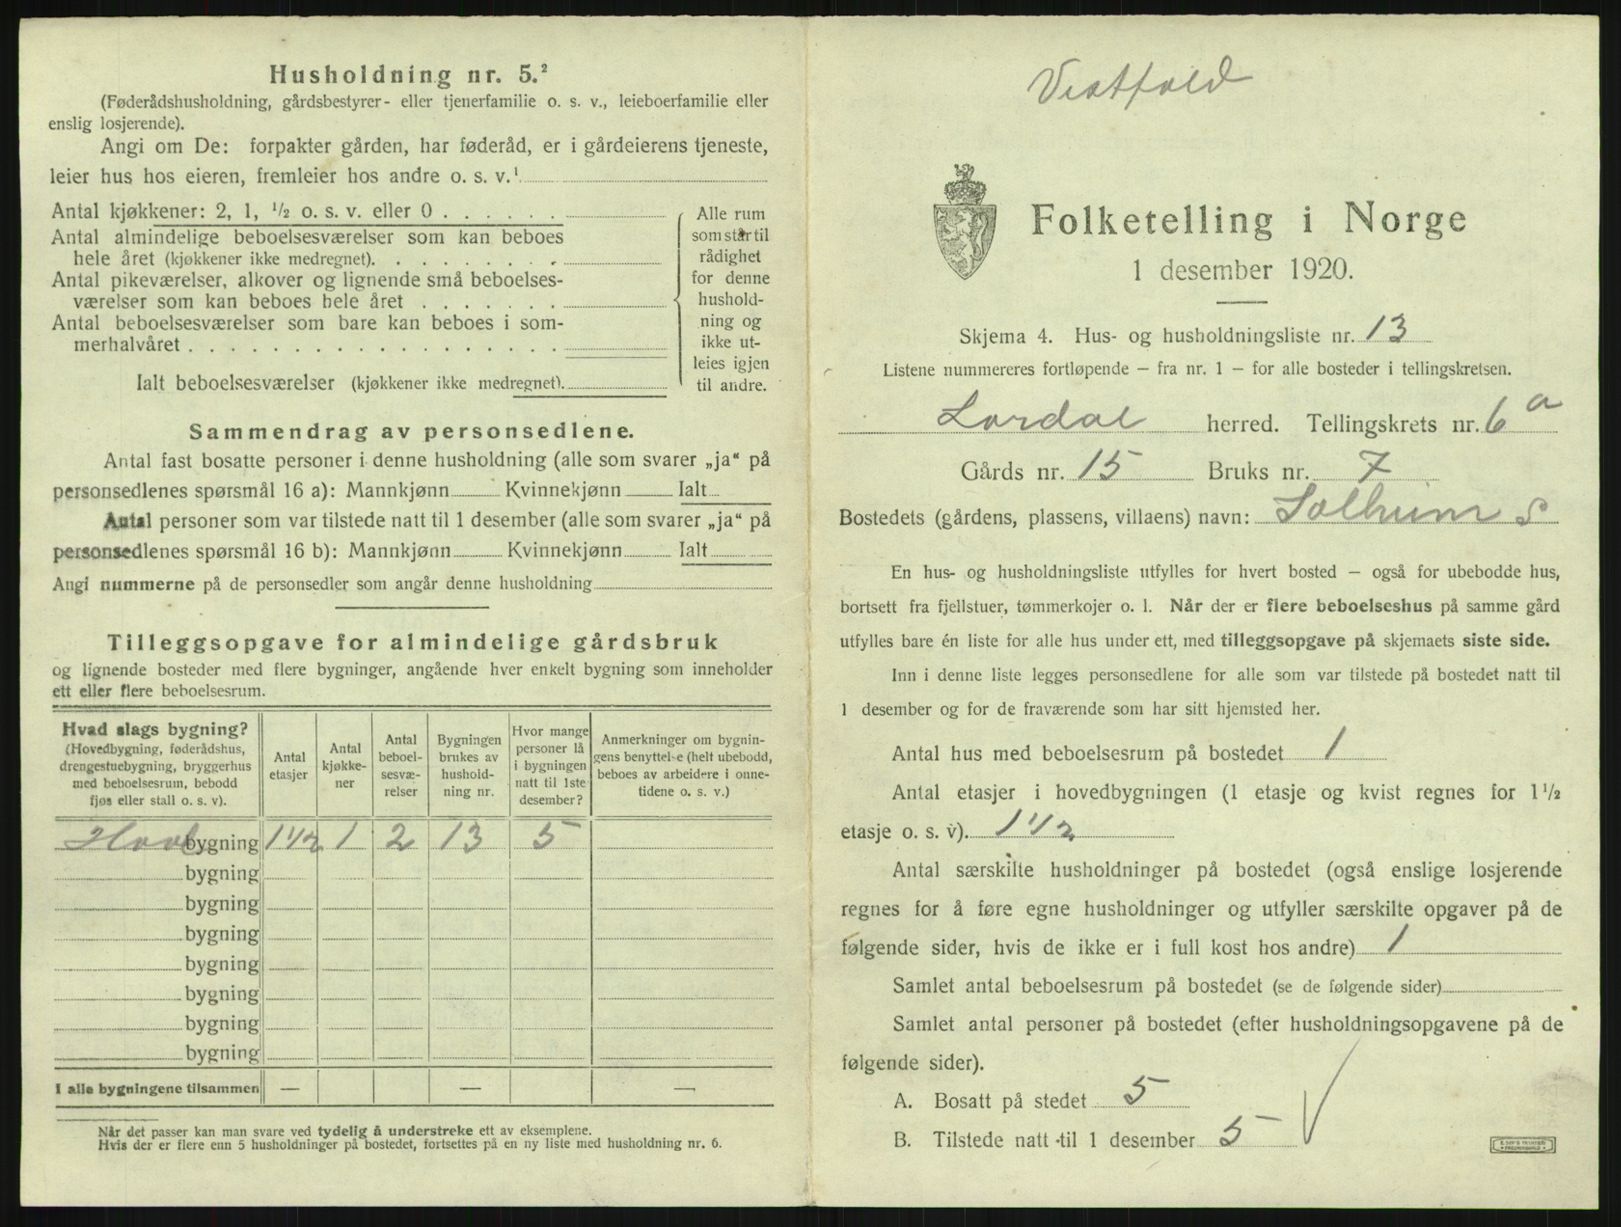 Husholdning nr. 5.²
(Føderådshusholdning, gårdsbestyrer- eller tjenerfamilie o. s. v., leieboerfamilie eller
enslig losjerende).
Angi om De: forpakter gården, har føderåd, er i gårdeierens tjeneste,
leier hus hos eieren, fremleier hos andre o. s. v.¹
Antal kjøkkener: 2, 1, ½ o. s. v. eller 0 . . . . . .
Antal almindelige beboelsesværelser som kan beboes
hele året (kjøkkener ikke medregnet). . . . . . . . .
Antal pikeværelser, alkover og lignende små beboelses-
værelser som kan beboes hele året . . . . . . .
Antal beboelsesværelser som bare kan beboes i som-
merhalvåret . . . . . . . . . . . . . . . . . .
Ialt beboelsesværelser (kjøkkener ikke medregnet).
Alle rum
som står til
rådighet
for denne
hushold-
ning og
ikke ut-
leies igjen
til andre.
Sammendrag av personsedlene.
Antal fast bosatte personer i denne husholdning (alle som svarer „ja“ på
personsedlenes spørsmål 16 a): Mannkjønn Kvinnekjønn Ialt
Antal personer som var tilstede natt til 1 desember (alle som svarer „ja“ på
personsedlenes spørsmål 16 b): Mannkjønn Kvinnekjønn Ialt
Angi nummerne på de personsedler som angår denne husholdning
Tilleggsopgave for almindelige gårdsbruk
og lignende bosteder med flere bygninger, angående hver enkelt bygning som inneholder
ett eller flere beboelsesrum.
Hvad slags bygning?
(Hovedbygning, føderådshus,
drengestuebygning, bryggerhus
med beboelsesrum, bebodd
fjøs eller stall o. s. v).
Antal
etasjer
Antal
kjøkke-
ner
Antal
beboel-
sesvæ-
relser
Bygningen
brukes av
hushold-
ning nr.
Hvor mange
personer lå
i bygningen
natt til 1ste
desember?
Anmerkninger om bygnin-
gens benyttelse (helt ubebodd,
beboes av arbeidere i onne-
tidene o. s. v.)
Hovedbygning 1½ 1 2 13 5
bygning
bygning
bygning
bygning
bygning
bygning
bygning
I alle bygningene tilsammen — — —
Når det passer kan man svare ved tydelig å understreke ett av eksemplene.
Hvis der er flere enn 5 husholdninger på bostedet, fortsettes på en ny liste med husholdning nr. 6.
Vestfold
Folketelling i Norge
1 desember 1920.
Skjema 4. Hus- og husholdningsliste nr. 13
Listene nummereres fortløpende — fra nr. 1 — for alle bosteder i tellingskretsen.
Lardal herred. Tellingskrets nr. 6 a
Gårds nr. 15 Bruks nr. 7
Bostedets (gårdens, plassens, villaens) navn: Solheim S
En hus- og husholdningsliste utfylles for hvert bosted — også for ubebodde hus,
bortsett fra fjellstuer, tømmerkojer o. l. Når der er flere beboelseshus på samme gård
utfylles bare én liste for alle hus under ett, med tilleggsopgave på skjemaets siste side.
Inn i denne liste legges personsedlene for alle som var tilstede på bostedet natt til
1 desember og for de fraværende som har sitt hjemsted her.
Antal hus med beboelsesrum på bostedet 1
Antal etasjer i hovedbygningen (1 etasje og kvist regnes for 1½
etasje o. s. v). 1½
Antal særskilte husholdninger på bostedet (også enslige losjerende
regnes for å føre egne husholdninger og utfyller særskilte opgaver på de
følgende sider, hvis de ikke er i full kost hos andre) 1
Samlet antal beboelsesrum på bostedet (se de følgende sider)
Samlet antal personer på bostedet (efter husholdningsopgavene på de
følgende sider).
A. Bosatt på stedet 5
B. Tilstede natt til 1 desember 5